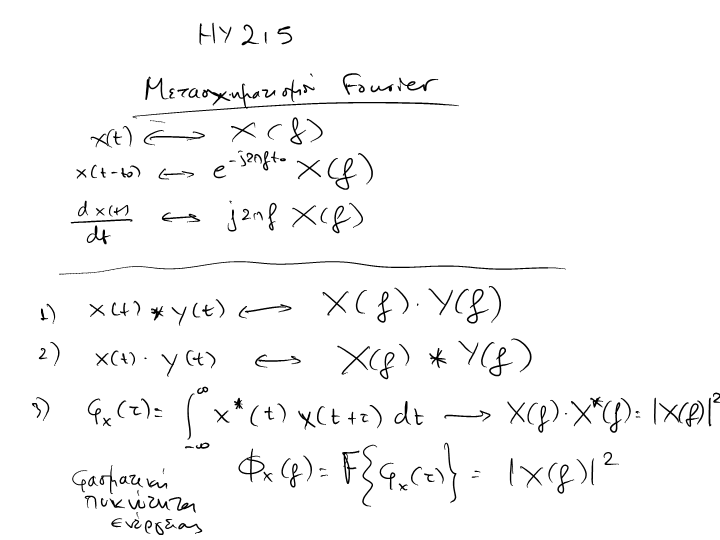 HY 215
Μετασχηματισμοί Fourier
x(t) ⟷ X(f)
x(t-t0) ⟷ e^-j2πft0 X(f)
dx(t)/dt ⟷ j2πf X(f)
1) x(t) * y(t) ⟷ X(f)·Y(f)
2) x(t)·y(t) ⟷ X(f) * Y(f)
3) φx(τ) = ∫_-∞^∞ x*(t) x(t+τ) dt ⟶ X(f)·X*(f) = |X(f)|^2
Φx(f) = F{φx(τ)} = |X(f)|^2
φασματική
πυκνότητα
ενέργειας